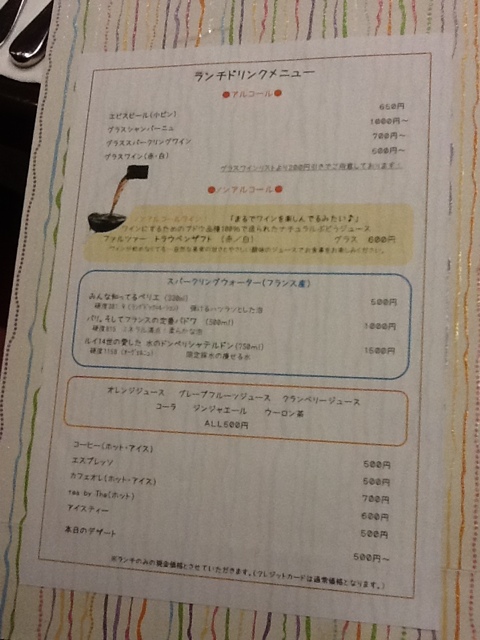 ランチドリンクメニュー
●アルコール●
エビスビール(小ビン) 650円
グラスシャンパーニュ 1000円～
グラススパークリングワイン 700円～
グラスワイン(赤・白) 600円～
グラスワインリストより200円引きでご用意しております!
●ノンアルコール●
ノンアルコールワイン! 「まるでワインを楽しんでるみたい♪」
ワインにするためのブドウ品種100%で造られたナチュラルぶどうジュース
ファルツァー トラウベンザフト (赤/白) グラス 600円
スパークリングウォーター(フランス産)
みんな知ってるペリエ (330ml) 500円
弾けるハツラツとした泡
パリ、そしてフランスの定番バドワ (500ml) 1000円
柔らかな泡
ルイ14世の愛した 水のドンペリシャテルドン(750ml) 1500円
限定採水の痩せる水
オレンジジュース グレープフルーツジュース クランベリージュース
コーラ ジンジャエール ウーロン茶
ALL500円
コーヒー(ホット・アイス) 500円
エスプレッソ 500円
カフェオレ(ホット・アイス) 700円
tea by The(ホット) 600円
アイスティー 500円
本日のデザート 500円～
※ランチのみの現金価格とさせていただきます。(クレジットカードは通常価格となります。)